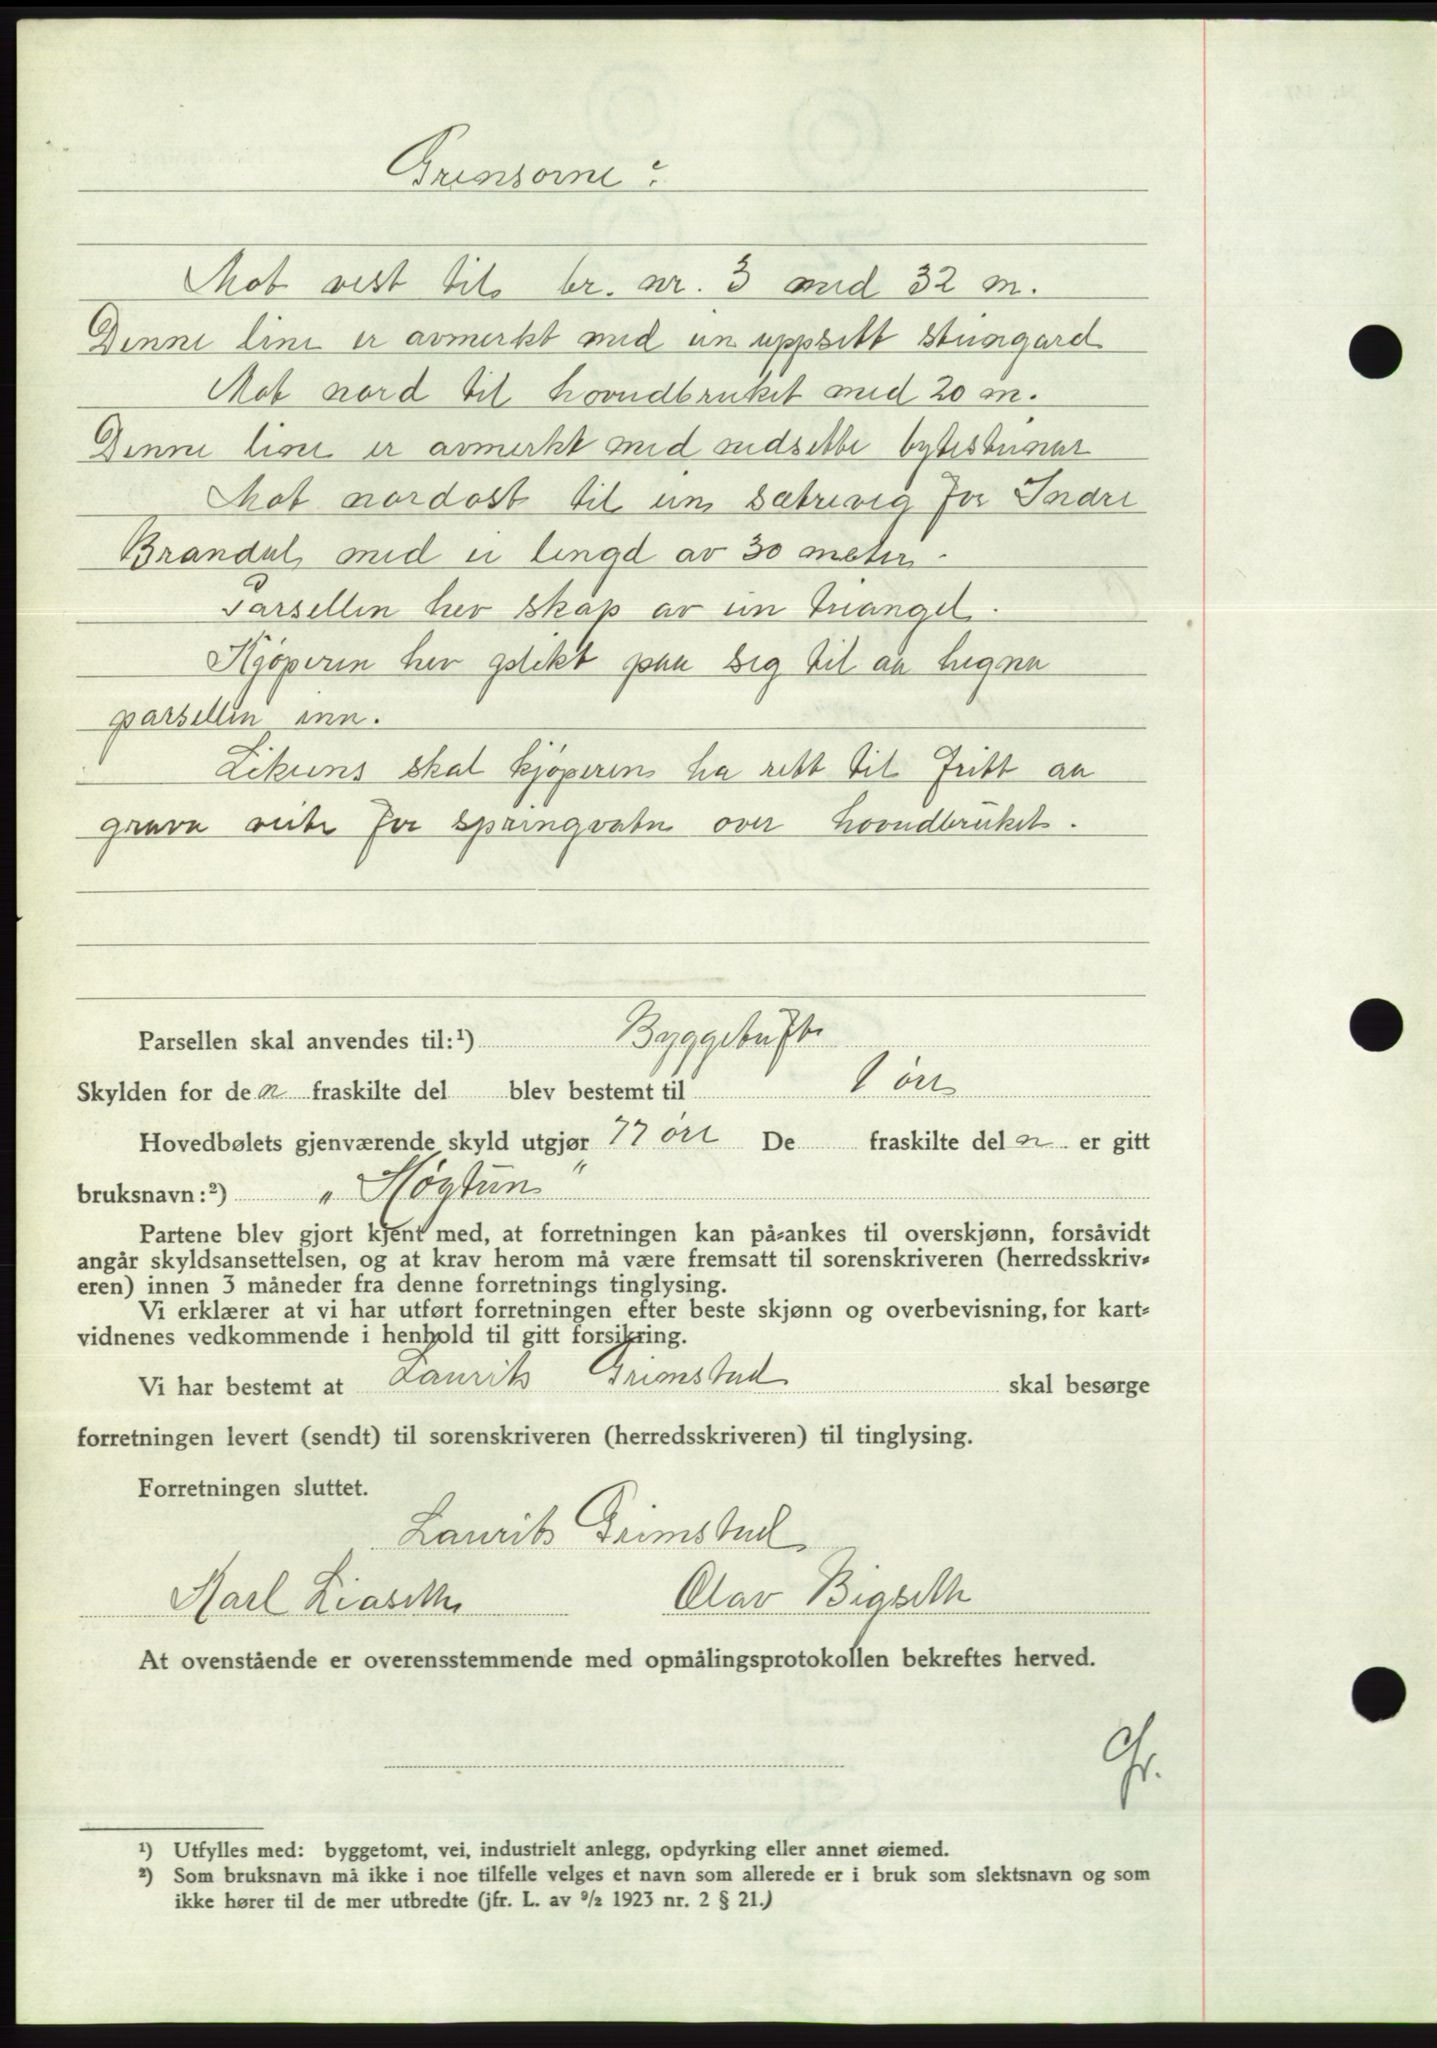 Grensorne :
Mot vest til br. nr. 3 med 32 m.
Denne line er avmerkt med ein uppsett steingard
Mot nord til hovudbruket med 20 m.
Denne line er avmerkt med nedsette bytesteinar
Mot nordost til ein sætreveg for Indre
Brandal med ei lengd av 30 meter.
Parsellen hev skap av ein triangel.
Kjøperen hev plikt paa seg til aa hegna
parsellen inn.
Likeins skal kjøperen ha rett til fritt aa
grava veite for springvatn over hovudbruket.
Parsellen skal anvendes til:¹) Byggetuft
Skylden for de n fraskilte del blev bestemt til 1 øre
Hovedbølets gjenværende skyld utgjør 77 øre De fraskilte del n er gitt
bruksnavn:²) „ Høgtun "
Partene blev gjort kjent med, at forretningen kan på-ankes til overskjønn, forsåvidt
angår skyldsansettelsen, og at krav herom må være fremsatt til sorenskriveren (herredsskriv-
eren) innen 3 måneder fra denne forretnings tinglysing.
Vi erklærer at vi har utført forretningen efter beste skjønn og overbevisning, for kart-
vidnenes vedkommende i henhold til gitt forsikring.
Vi har bestemt at Laurits Grimstad skal besørge
forretningen levert (sendt) til sorenskriveren (herredsskriveren) til tinglysing.
Forretningen sluttet.
Laurits Grimstad
Karl Liaseth Olav Bigseth
At ovenstående er overensstemmende med opmålingsprotokollen bekreftes herved.
Gr.
¹) Utfylles med: byggetomt, vei, industrielt anlegg, opdyrking eller annet øiemed.
²) Som bruksnavn må ikke i noe tilfelle velges et navn som allerede er i bruk som slektsnavn og som
ikke hører til de mer utbredte (jfr. L. av ⁹/₂ 1923 nr. 2 § 21.)